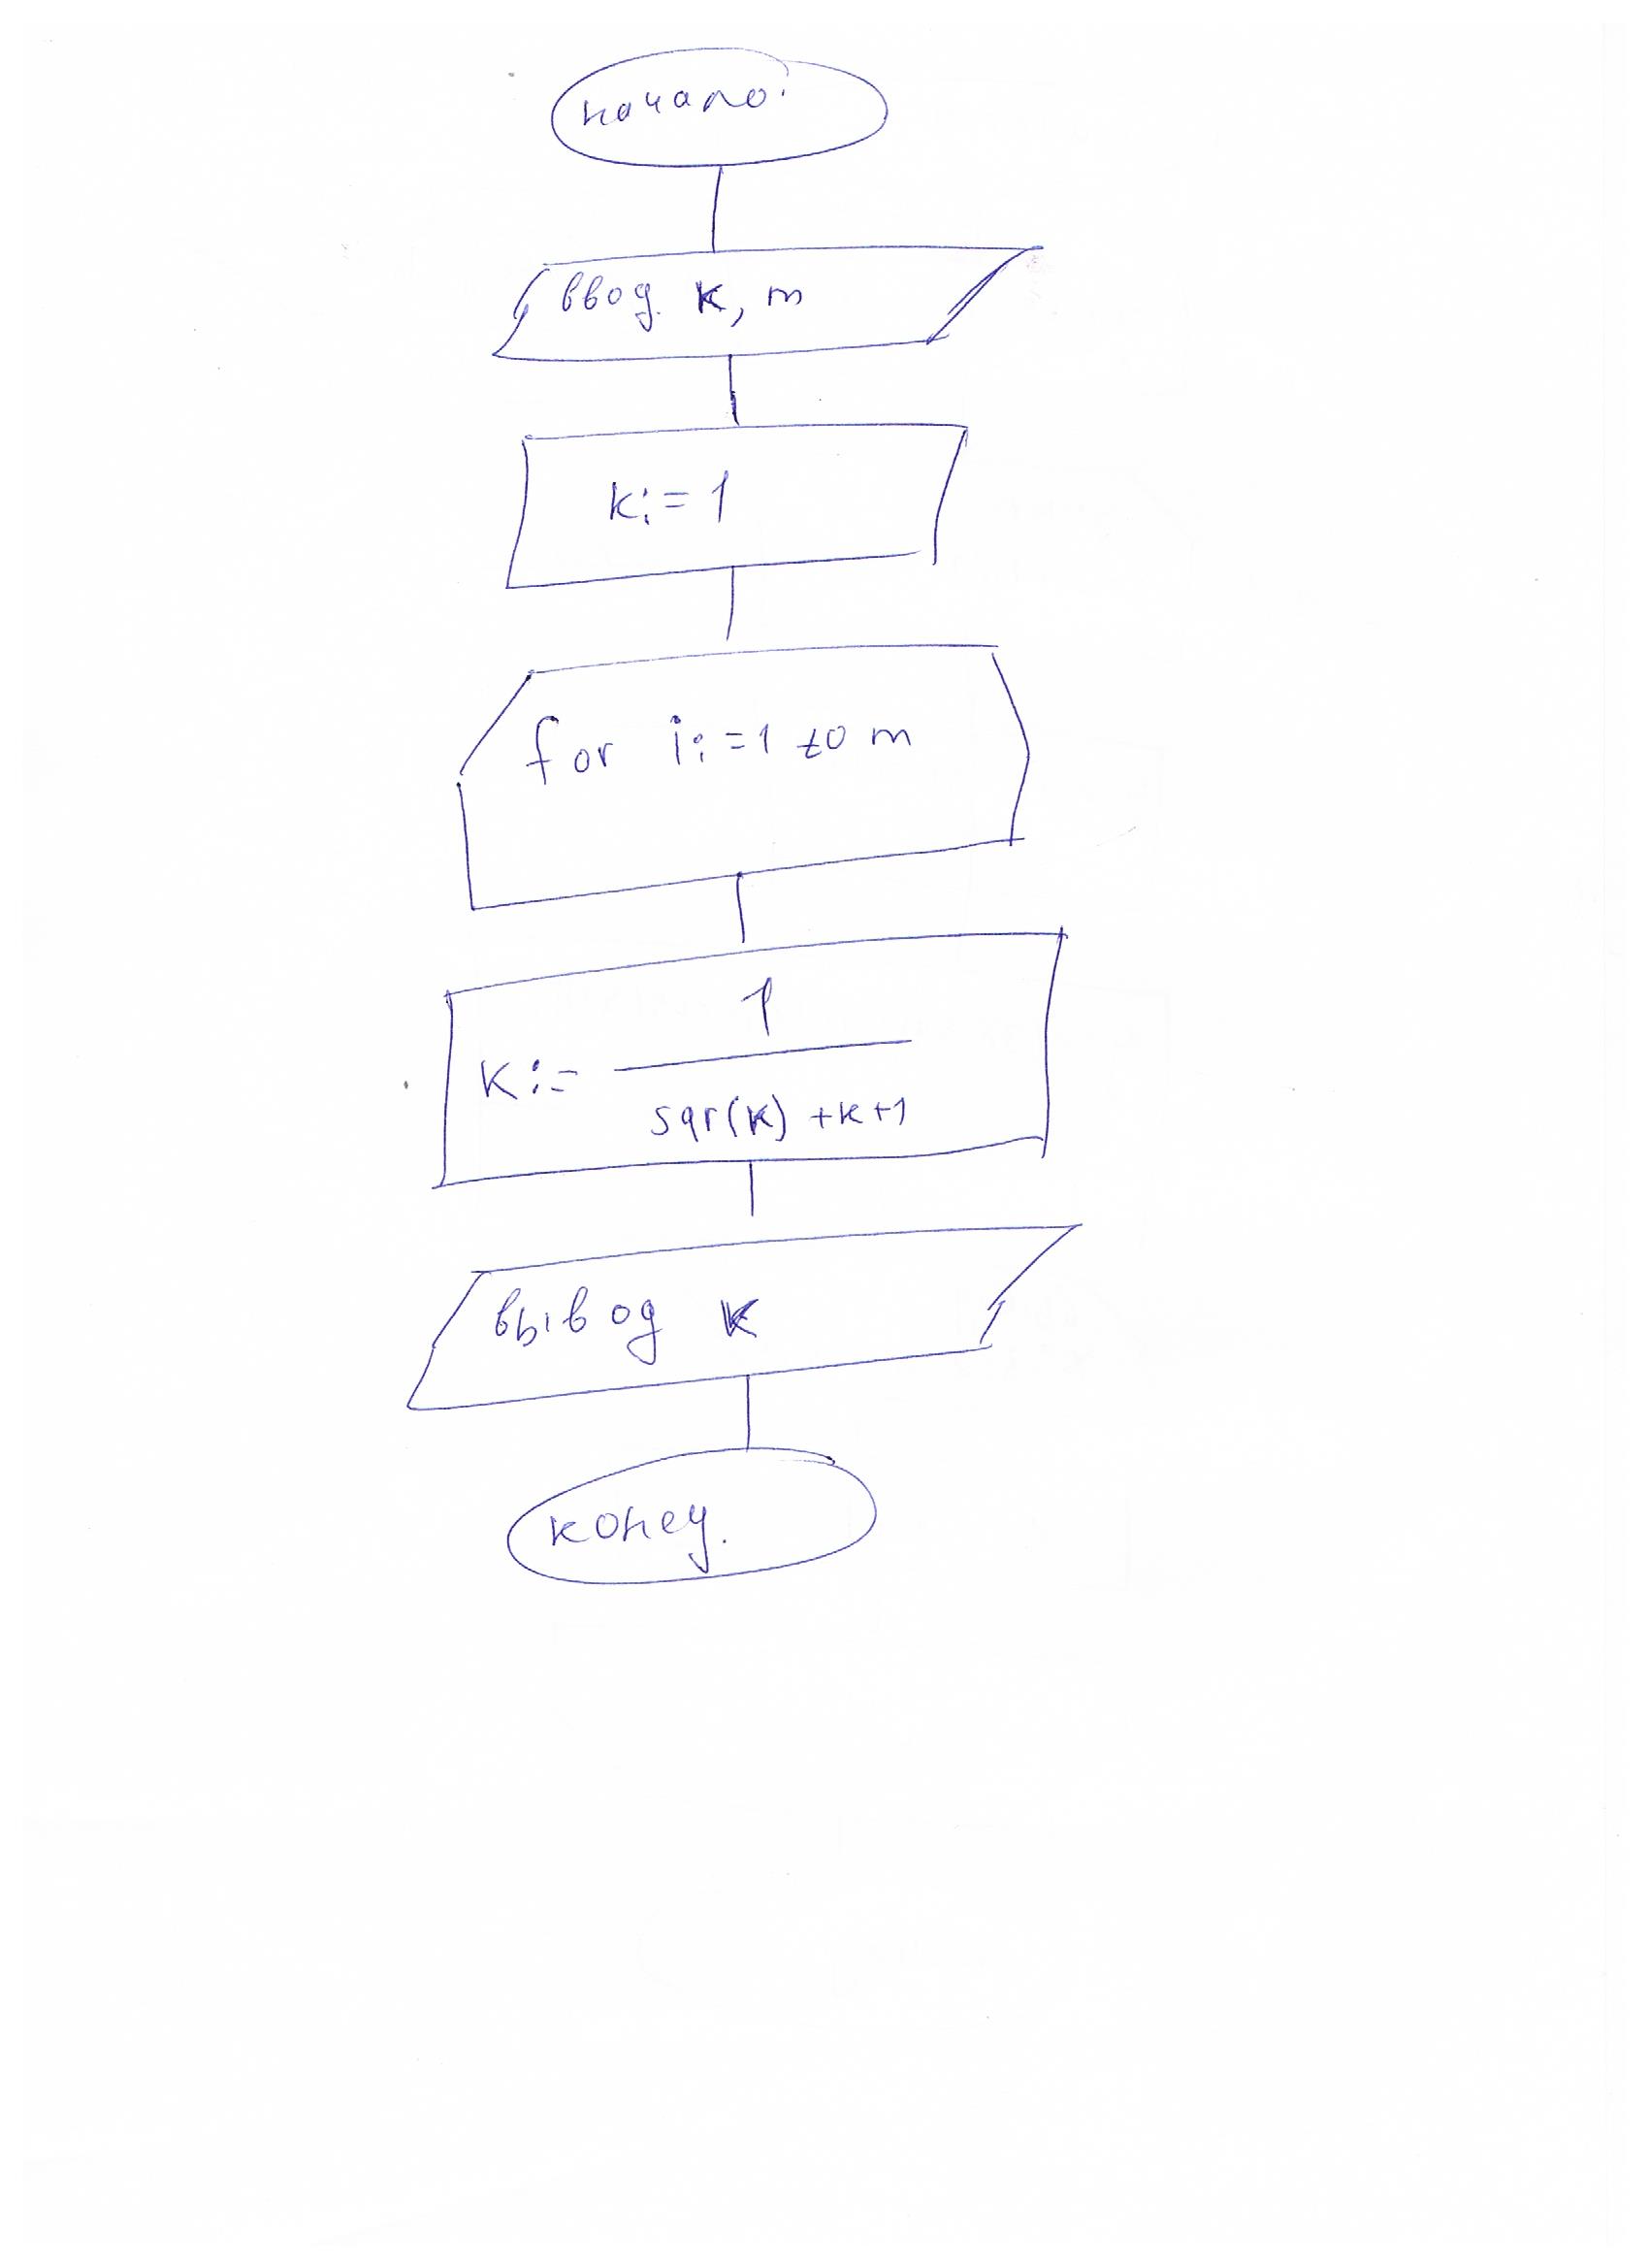 начало.
ввод. к, m
k:=1
for i:=1 to m
1
к:=
sqr(к) +к+1
вывод к
конец.